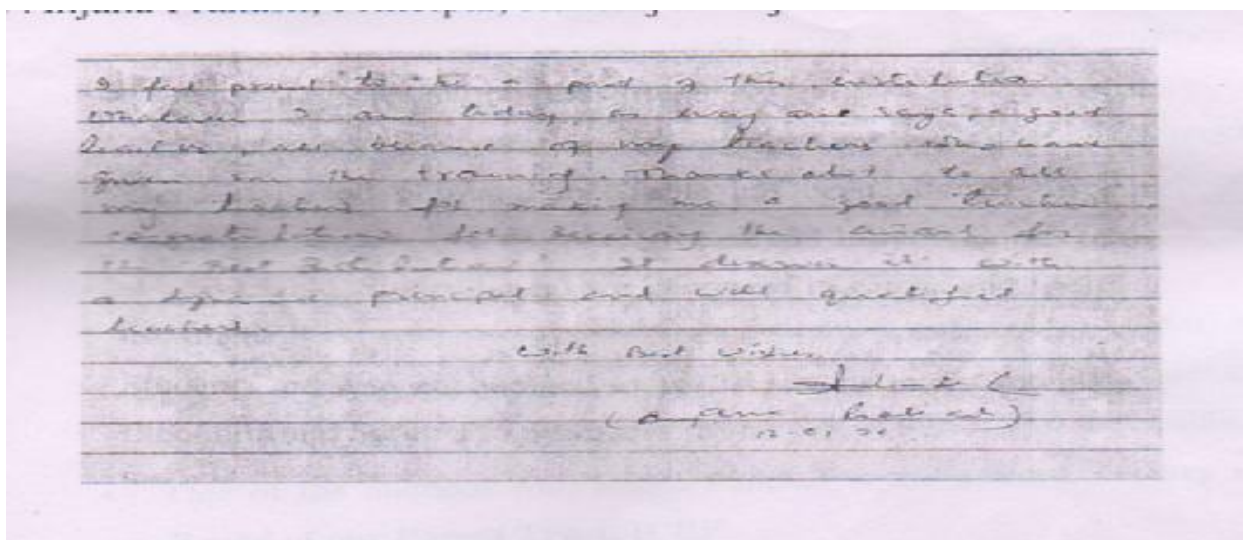 I feel proud to be a part of this institution
Whatever I am today, as many one says, a good
teacher, all because of my teachers who have
given me the training. Thanks alot to all
my teachers for making me a good teacher.
Congratulations for receiving the award for
the Best Institution. It deserves it with
a dynamic principal and well qualified
teachers.
With Best Wishes
(Anjana Prakash)